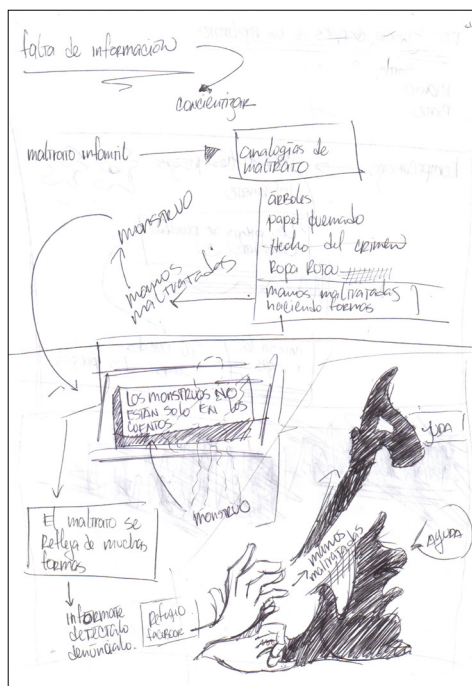 falta de información
concientizar
maltrato infantil
analogías de
maltrato
árboles
papel quemado
Hecho del crimen
Ropa Rota
manos maltratadas
haciendo formas
manos
maltratadas
monstruo
LOS MONSTRUOS NO
ESTAN SOLO EN LOS
CUENTOS
monstruo
El maltrato se
Refleja de muchas
formas
informate
detectalo
denúncialo.
Refugio
manos
maltratadas
AYUDA